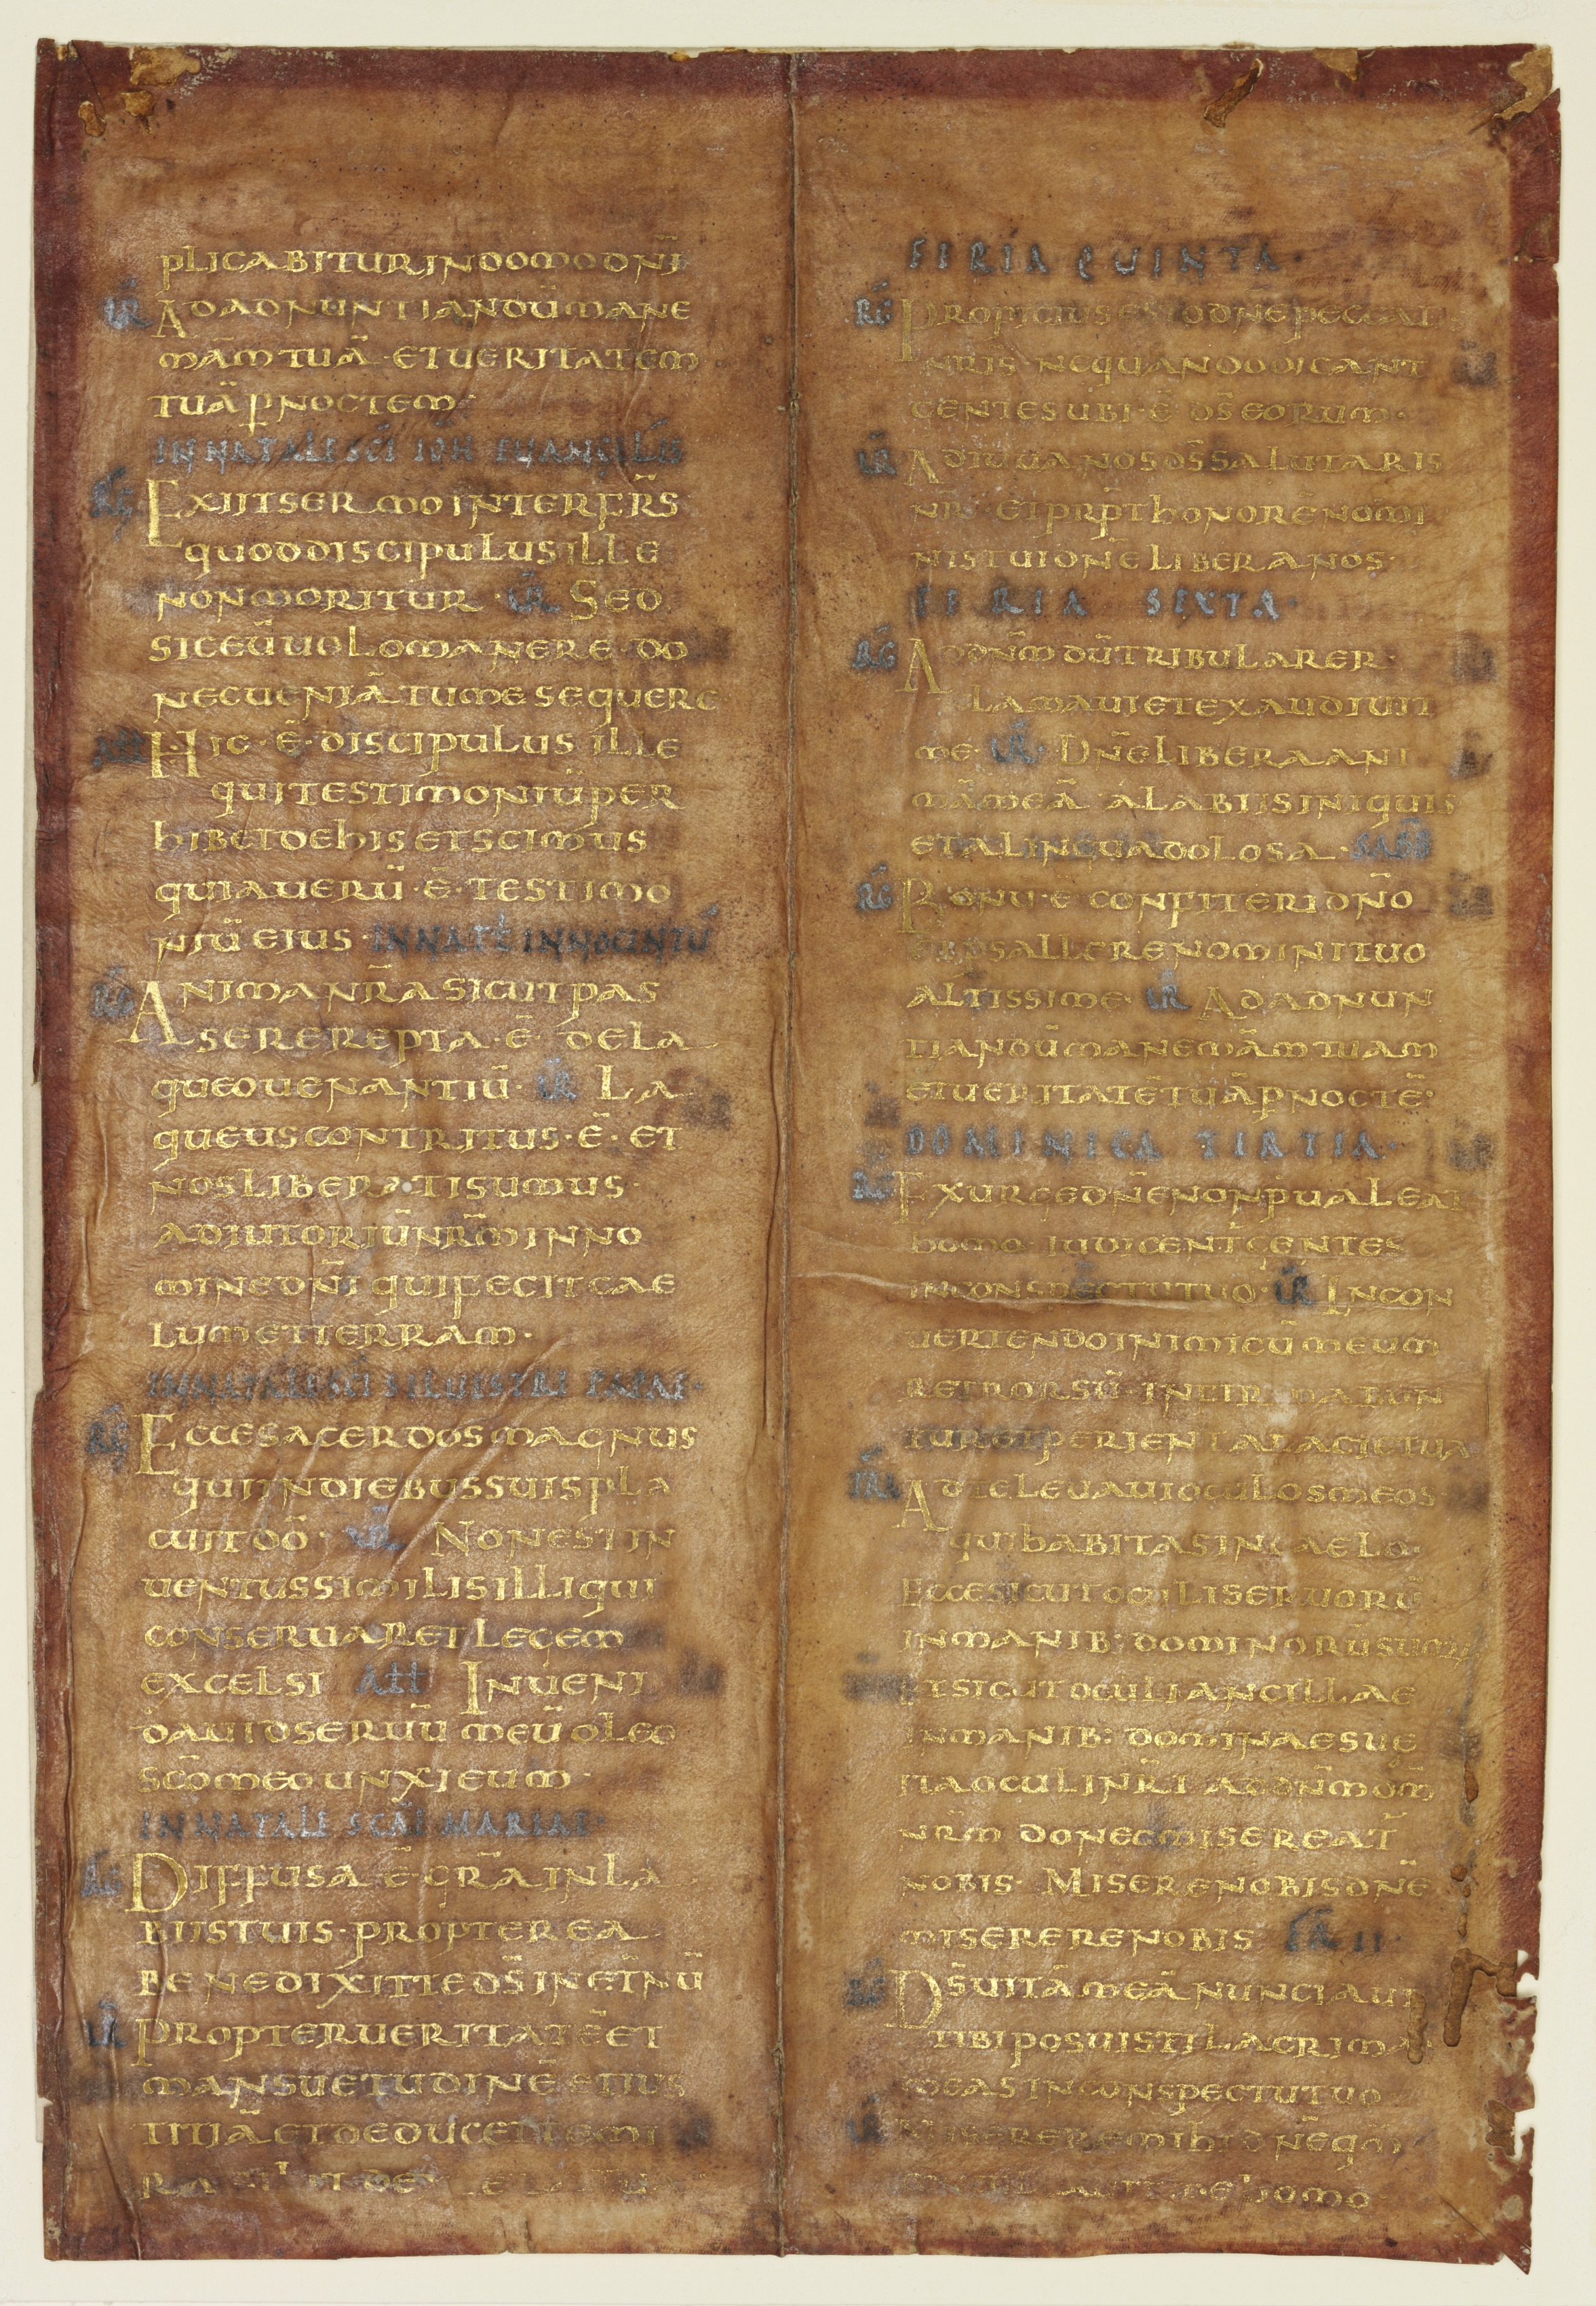 plicabitur in domo dn̄i
V̄R Ad adnuntiandū mane
mām tuā · et ueritatem
tuā p noctem ·
IN NATALE SCĪ IOH EUANGELIS
RG Exiit sermo inter fr̄s
quod discipulus ille
non moritur · V̄R Sed
sic eū uolo manere do
nec ueniā tu me sequere
ALL Hic · ē · discipulus ille
qui testimoniū per
hibet de his et scimus
quia uerū · ē · testimo
niū eius · IN NATL̄ INNOCENTŪ
RG Anima nr̄a sicut pas
ser erepta · ē · de la
queo uenantiū · V̄R La
queus contritus · ē · et
nos liberati sumus ·
adiutoriū nr̄m in no
mine dn̄i qui fecit cae
lum et terram ·
IN NATALE SCĪ SILUESTRI PAPAE ·
RG Ecce sacerdos magnus
qui in diebus suis pla
cuit dō · V̄R Non est in
uentus similis illi qui
conseruaret legem
excelsi ALL Inueni
dauid seruū meū oleo
scō meo unxi eum ·
IN NATALE SCĀE MARIAE ·
RG Diffusa · ē · gr̄a in la
biis tuis · propterea
benedixit te ds̄ in etn̄ū
V̄R Propter ueritatē et
mansuetudinē et ius
titiā et deducet te mi
FERIA QUINTA ·
RG Propitius esto dn̄e peccatis
nr̄is ne quando dicant
gentes ubi · ē · ds̄ eorum ·
V̄R Adiuua nos ds̄ salutaris
nr̄ · et prpt honorē nomi
nis tui dn̄e libera nos ·
FERIA SEXTA ·
RG Ad dn̄m dū tribularer ·
clamaui et exaudiuit
me · V̄R · Dn̄e libera ani
mā meā a labiis iniquis
et a lingua dolosa · SABB̄
RG Bonū · ē · confiteri dn̄o
et psallere nomini tuo
altissime · V̄R Ad adnun
tiandū mane mām tuam
et ueritatē tuā p noctē ·
DOMINICA TERTIA ·
RG Exurge dn̄e non pualeat
homo iudicent gentes
in conspectu tuo · V̄R In con
uertendo inimicū meum
retrorsū · infirmabun
tur et perient a facie tua
TRA Ad te leuaui oculos meos
qui habitas in caelo ·
Ecce sicut oculi seruorū
in manib: dominorū suorū
Et sicut oculi ancillae
in manib: dominae suę
ita oculi nr̄i ad dn̄m dm̄
nr̄m donec misereat̄
nobis · Miserere nobis dn̄e
miserere nobis FR̄ II ·
RG Ds̄ uitā meā nunciaui
tibi posuisti lacrima
meas in conspectu tuo
V̄R Miserere mihi dn̄e qm̄
homo